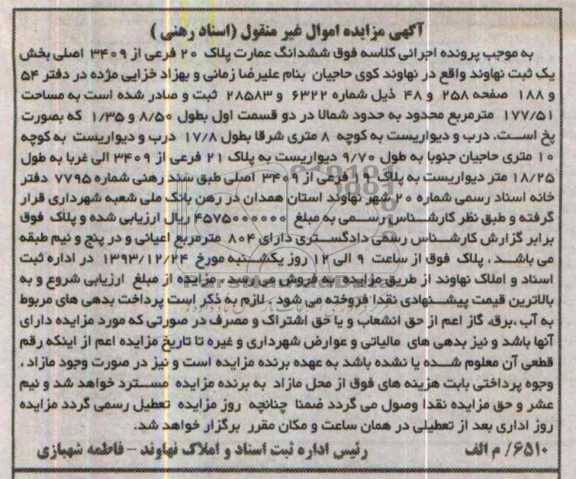 آگهی مزایده اموال غیر منقول (اسناد رهنی )
به موجب پرونده اجرائی کلاسه فوق ششدانگ عمارت پلاک ۲۰ فرعی از ۳۴۰۹ اصلی بخش
یک ثبت نهاوند واقع در نهاوند کوی حاجیان بنام علیرضا زمانی و بهزاد خزایی مژده در دفتر ۵۴
و ۱۸۸ صفحه ۲۵۸ و ۴۸ ذیل شماره ۶۳۲۲ و ۲۸۵۸۳ ثبت و صادر شده است به مساحت
۱۷۷/۵۱ مترمربع محدود به حدود شمالا در دو قسمت اول بطول ۸/۵۰ و ۱/۳۵ که بصورت
پخ است. درب و دیواریست به کوچه ۸ متری شرقا بطول ۱۷/۸ درب و دیواریست به کوچه
۱۰ متری حاجیان جنوبا به طول ۹/۷۰ دیواریست به پلاک ۲۱ فرعی از ۳۴۰۹ الی غربا به طول
۱۸/۲۵ متر دیواریست به پلاک ۱۹ فرعی از ۳۴۰۹ اصلی طبق سند رهنی شماره ۷۷۹۵ دفتر
خانه اسناد رسمی شماره ۲۰ شهر نهاوند استان همدان در رهن بانک ملی شعبه شهرداری قرار
گرفته و طبق نظر کارشناس رسمی به مبلغ ۴۵۷۵۰۰۰۰۰۰ ریال ارزیابی شده و پلاک فوق
برابر گزارش کارشناس رسمی دادگستری دارای ۸۰۴ مترمربع اعیانی و در پنج و نیم طبقه
می باشد ، پلاک فوق از ساعت ۹ الی ۱۲ روز یکشنبه مورخ ۱۳۹۳/۱۲/۲۴ در اداره ثبت
اسناد و املاک نهاوند از طریق مزایده به فروش می رسد . مزایده از مبلغ ارزیابی شروع و به
بالاترین قیمت پیشنهادی نقدا فروخته می شود . لازم به ذکر است پرداخت بدهی های مربوط
به آب ،برق، گاز اعم از حق انشعاب و یا حق اشتراک و مصرف در صورتی که مورد مزایده دارای
آنها باشد و نیز بدهی های مالیاتی و عوارض شهرداری و غیره تا تاریخ مزایده اعم از اینکه رقم
قطعی آن معلوم شده یا نشده باشد به عهده برنده مزایده است و نیز در صورت وجود مازاد ،
وجوه پرداختی بابت هزینه های فوق از محل مازاد به برنده مزایده مسترد خواهد شد و نیم
عشر و حق مزایده نقدا وصول می گردد ضمنا چنانچه روز مزایده تعطیل رسمی گردد مزایده
روز اداری بعد از تعطیلی در همان ساعت و مکان مقرر برگزار خواهد شد.
۶۵۱۰/ م الف رئیس اداره ثبت اسناد و املاک نهاوند – فاطمه شهبازی